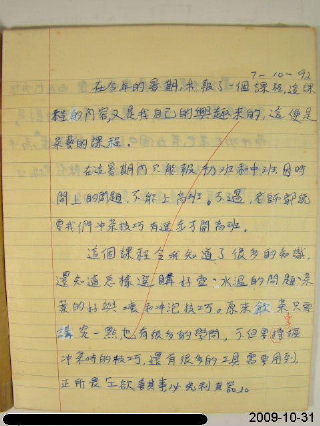 7-10-92
在今年的暑期,我報了一個課程,這課
程的內容又是我自己的興趣來的,這便是
茶藝的課程。
在這暑期內只能報初班和中班,因時
間上的問題,不能上高班。不過,老師都說
要我們沖茶技巧有進步才開高班。
這個課程令我知道了很多的知識,
還知道怎樣選購好壺、水溫的問題、茶
葉的好與壞和沖泡技巧。原來飲茶只要
講究一點也有很多的學問,不但要
沖茶時的技巧,還有很多的工具需要用到,
正所謂工欲善其事必先利其器」。
2009-10-31